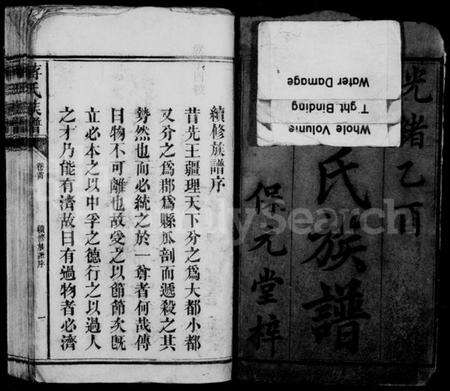 光緒乙酉
氏族譜
保元堂梓
Whole Volume
Tight Binding
Water Damage
續修族譜序
昔先王疆理天下分之為大都小都
又分之為郡為縣瓜剖而遞殺之其
勢然也而必統之於一尊者何哉傳
曰物不可離也故受之以節節矣既
立必本之以中孚之德行之以過人
之才乃能有濟故曰有過物者必濟
氏族譜
卷首
續修族譜序
一
MySearch